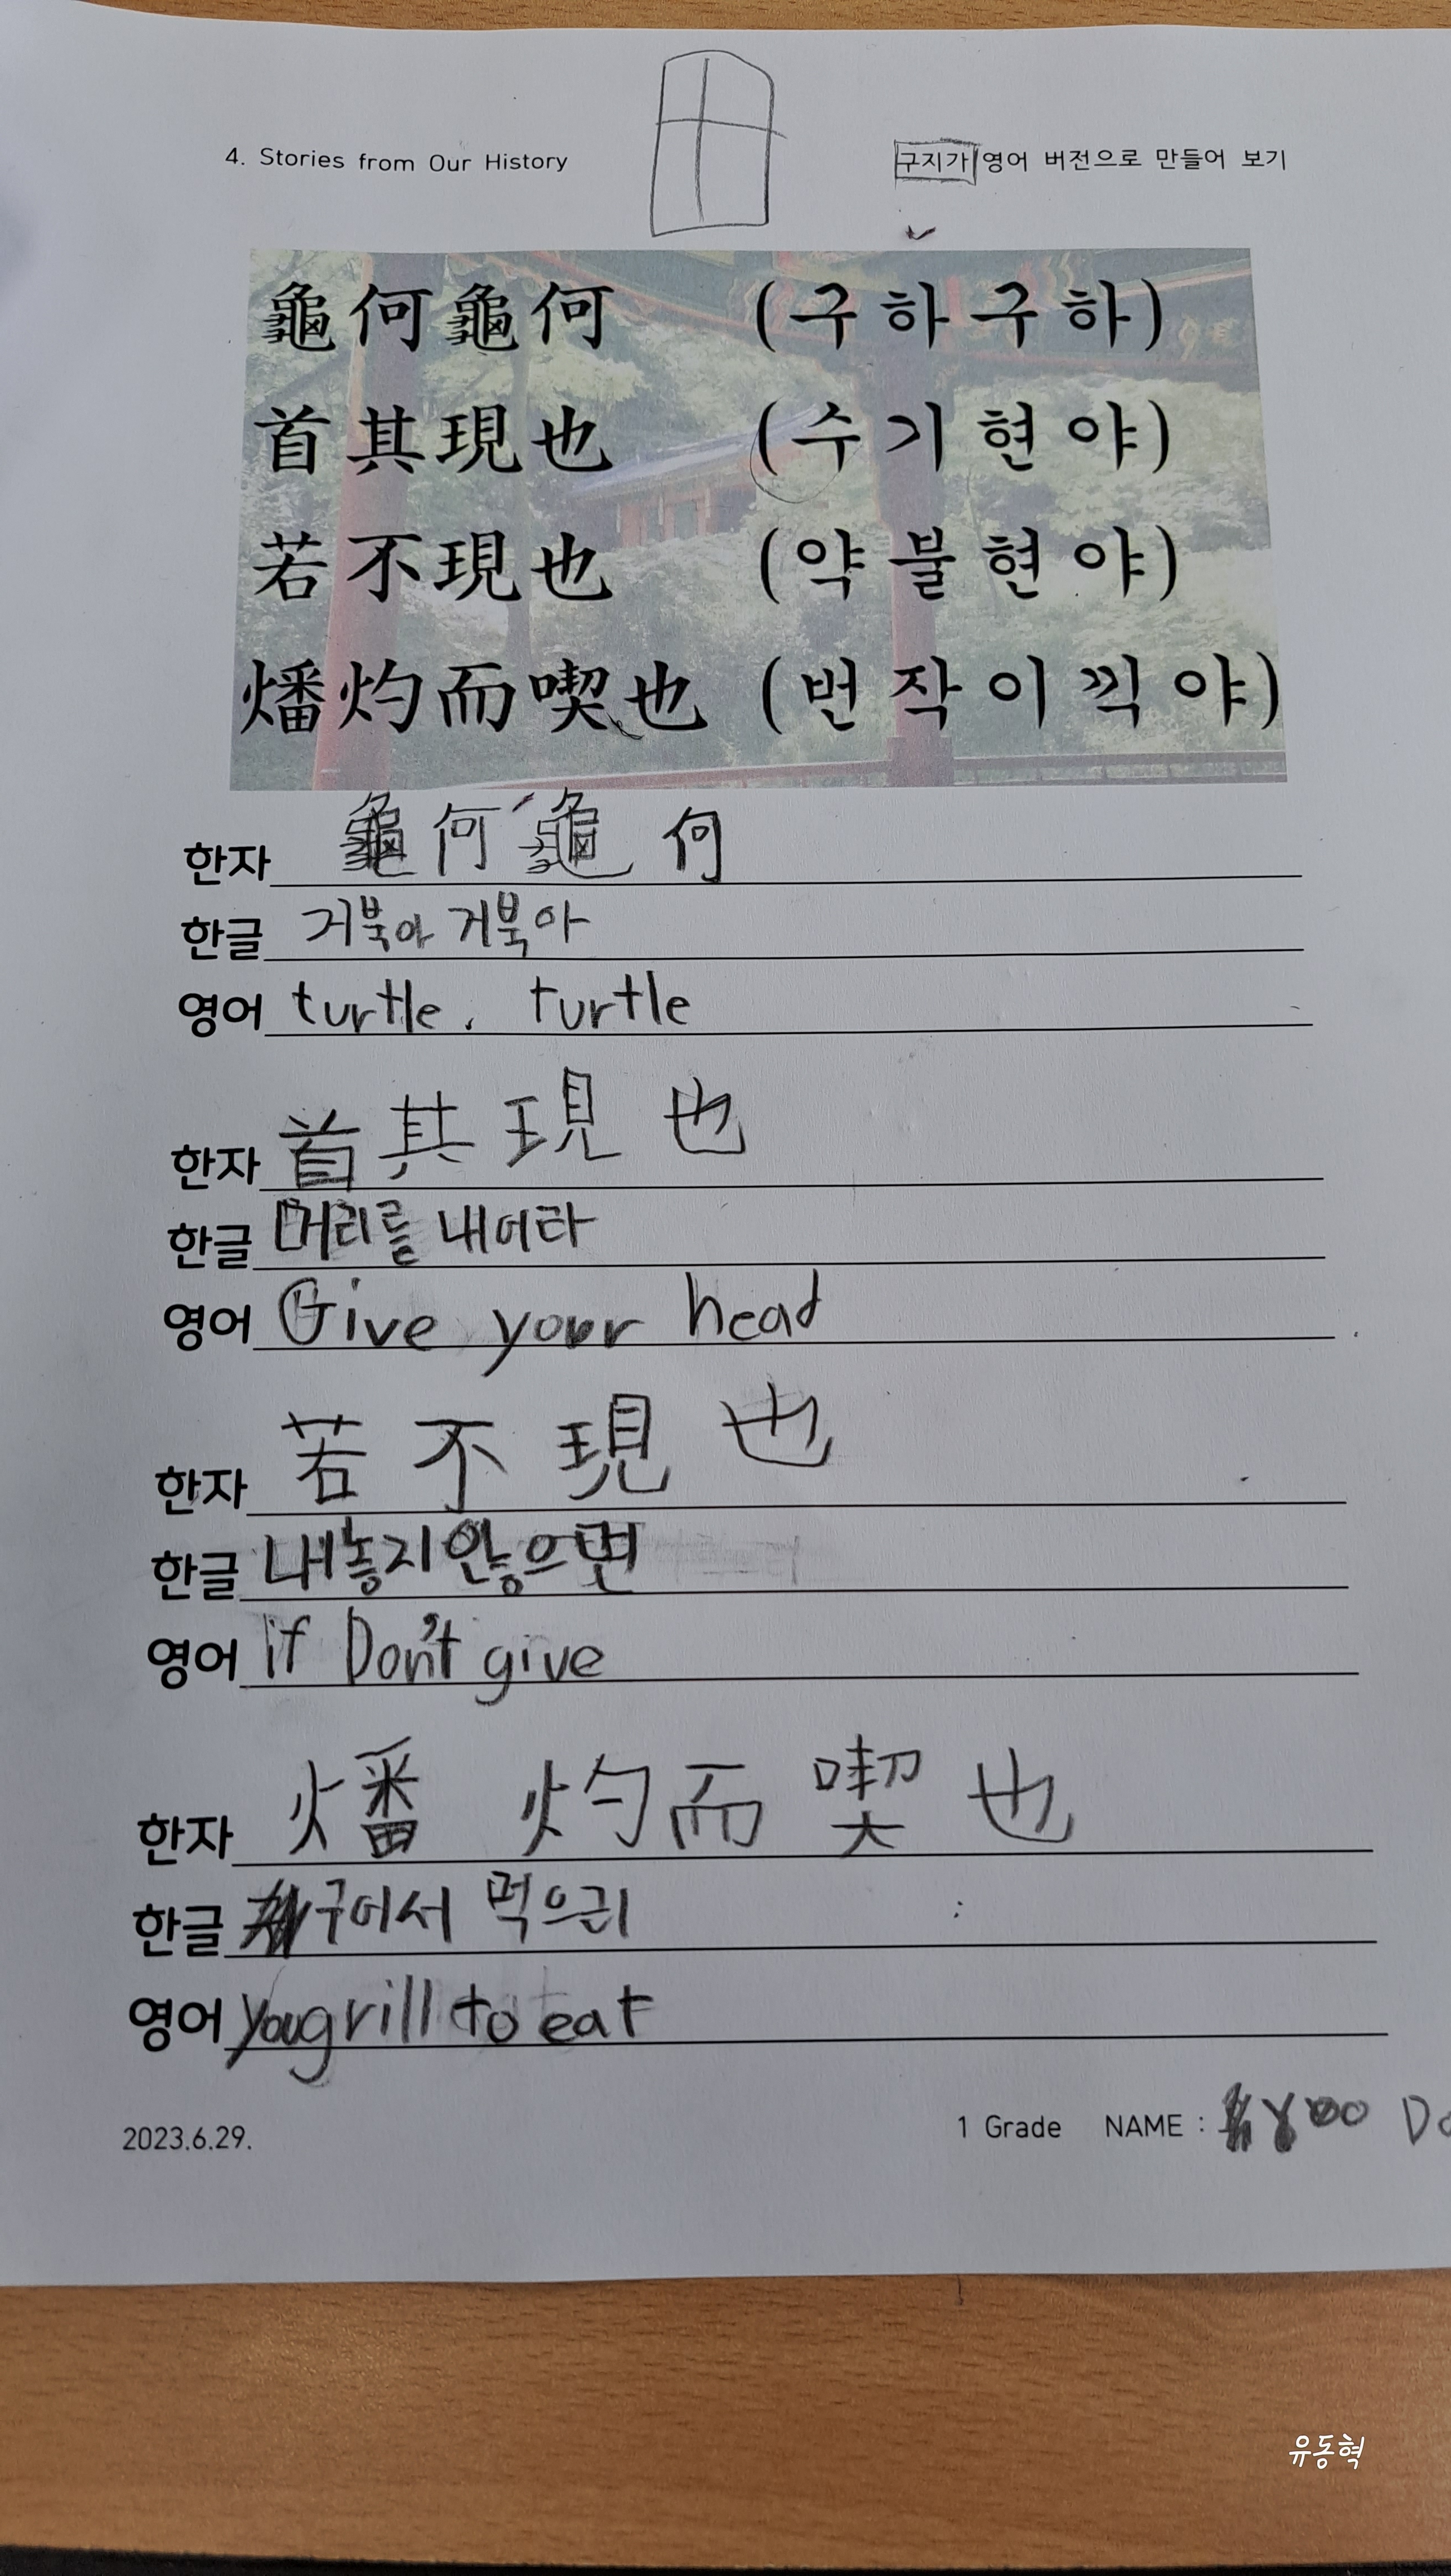 4. Stories from Our History
구지가 영어 버전으로 만들어 보기
龜何龜何 (구하구하)
首其現也 (수기현야)
若不現也 (약불현야)
燔灼而喫也 (번작이끽야)
한자 龜何龜何
한글 거북아 거북아
영어 turtle, turtle
한자 首其現也
한글 머리를 내어라
영어 Give your head
한자 若不現也
한글 내놓지않으면
영어 if Don't give
한자 燔灼而喫也
한글 구어서 먹으리
영어 You grill to eat
2023.6.29.
1 Grade NAME : Yoo
유동혁